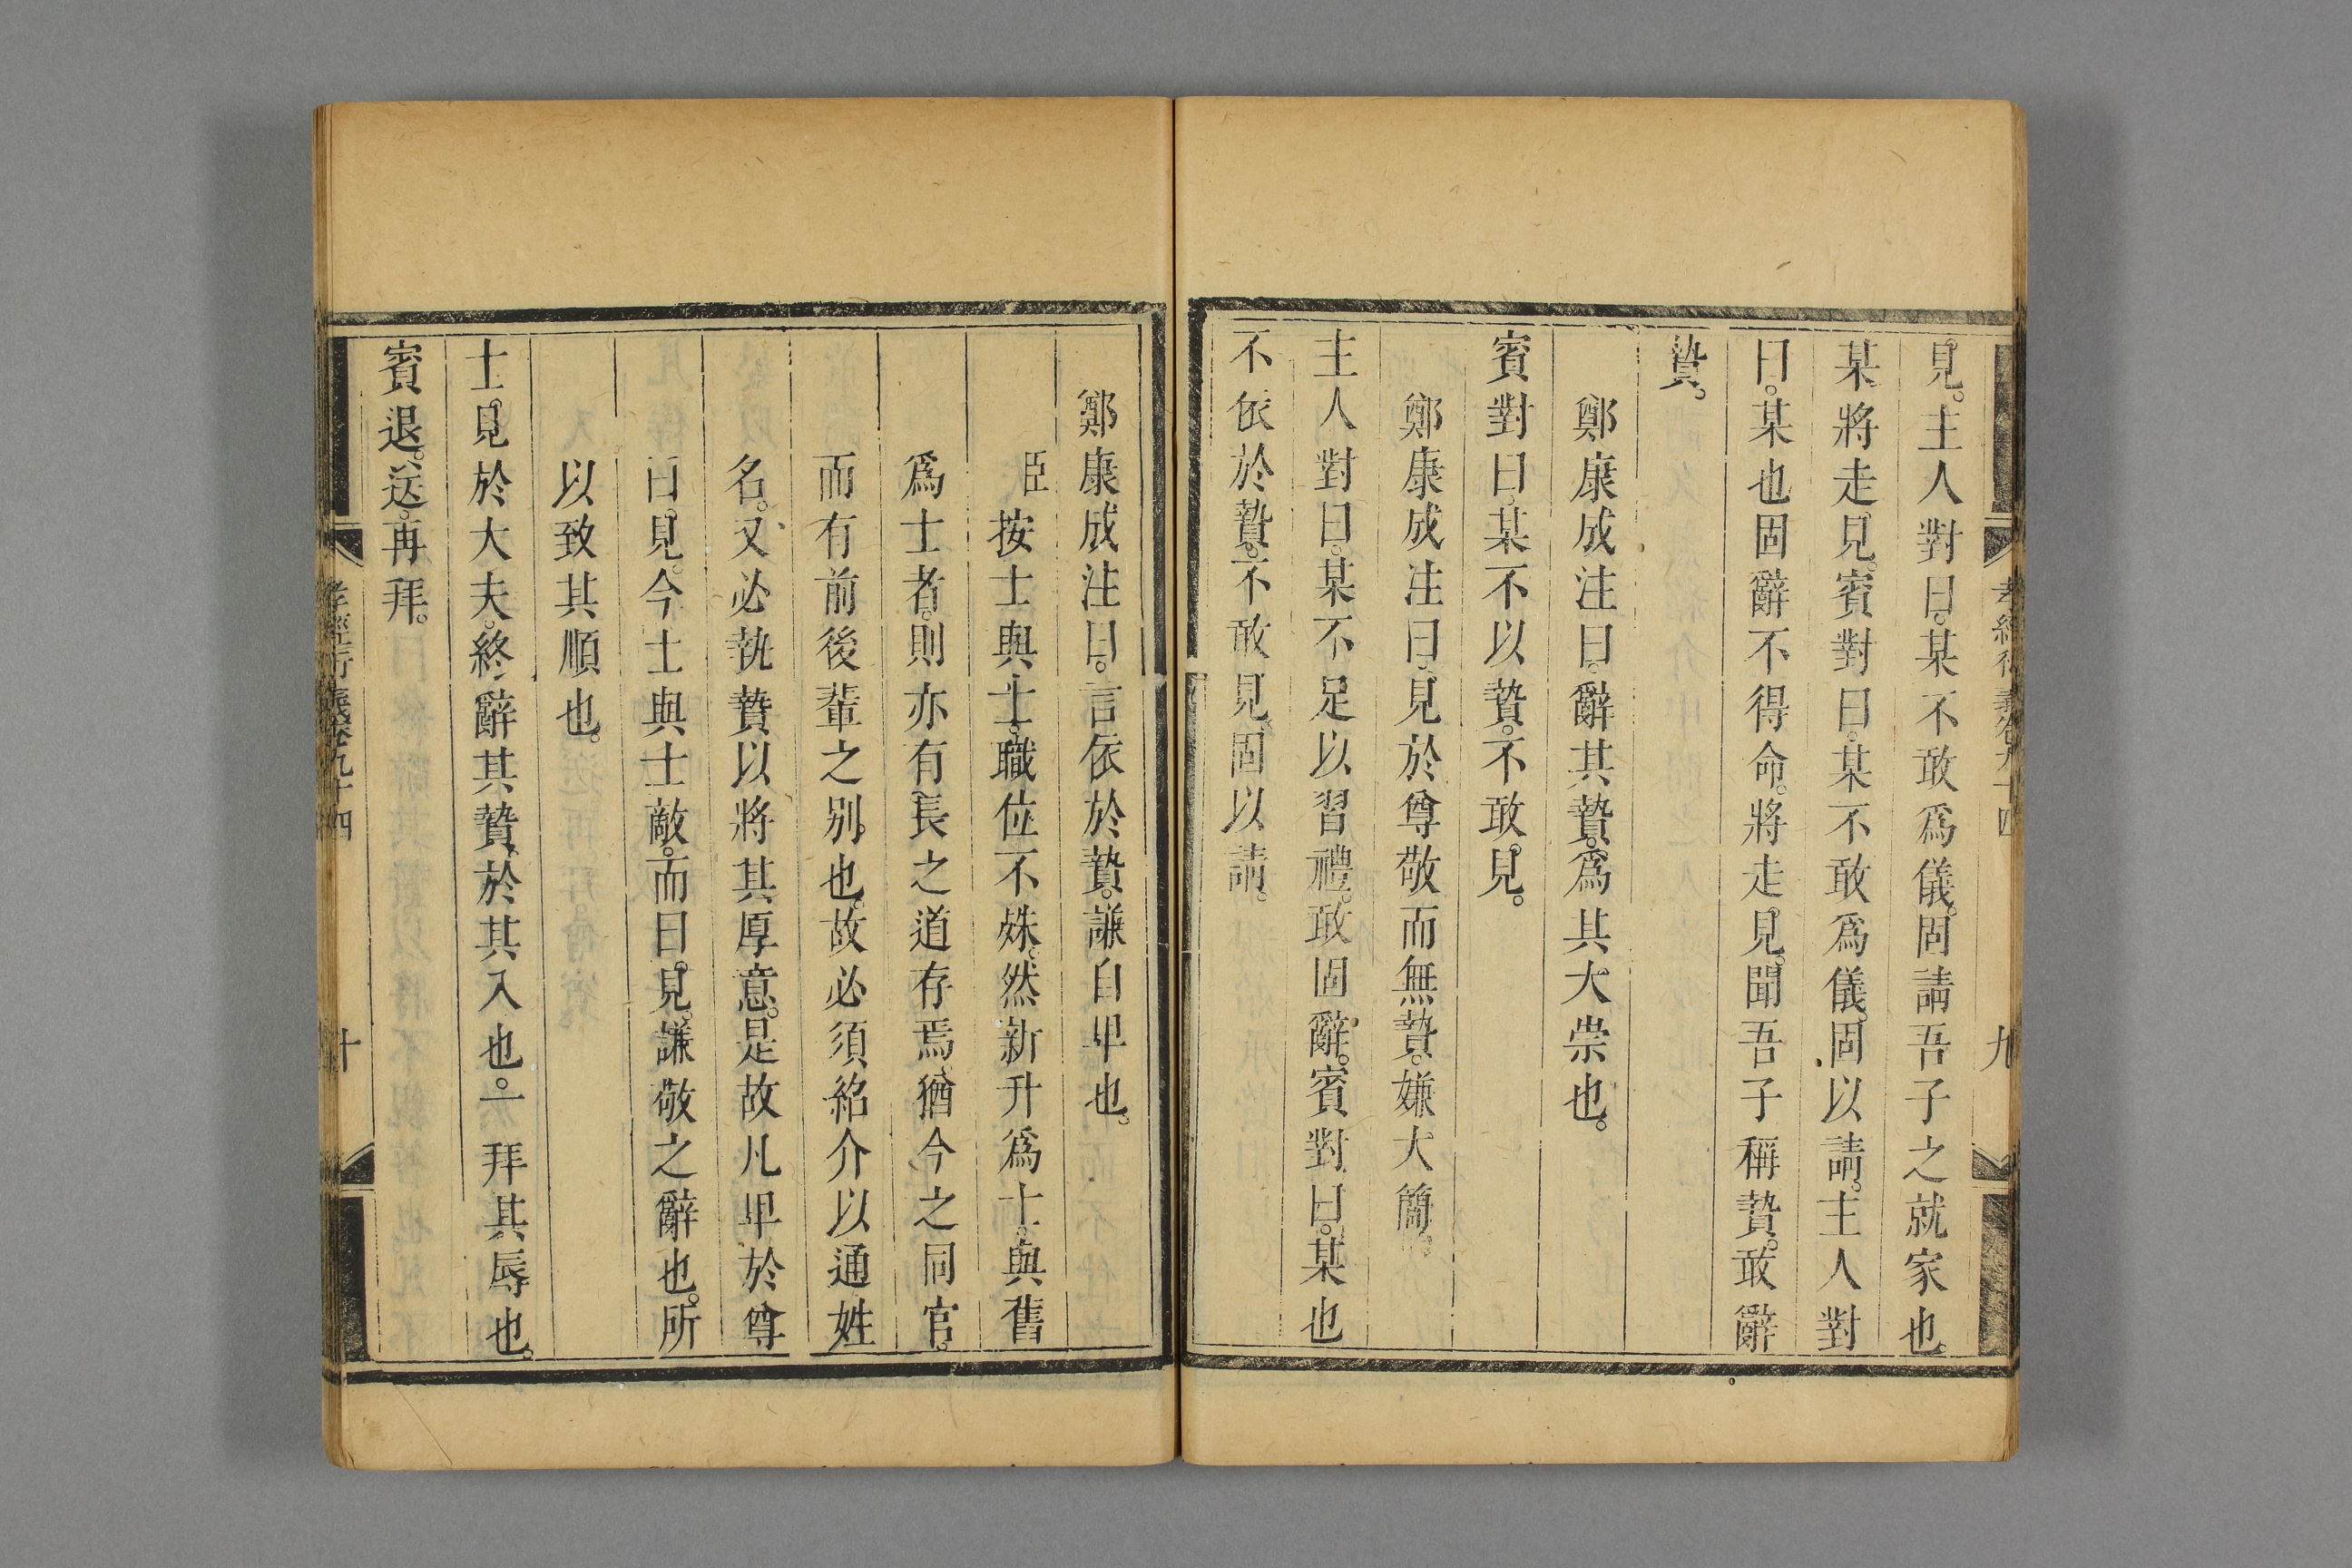 見。主人對曰。某不敢爲儀。固請吾子之就家也。
某將走見。賓對曰。某不敢爲儀。固以請。主人對
曰。某也固辭不得命。將走見。聞吾子稱贄。敢辭
贄。
鄭康成注曰。辭其贄。爲其大崇也。
賓對曰。某不以贄。不敢見。
鄭康成注曰。見於尊敬而無贄。嫌大簡。
主人對曰。某不足以習禮。敢固辭。賓對曰。某也
不依於贄。不敢見。固以請。
孝經衍義卷九十四
九
鄭康成注曰。言依於贄。謙自卑也。
臣按士與士。職位不殊。然新升爲士。與舊
爲士者。則亦有長之道存焉。猶今之同官。
而有前後輩之别也。故必須紹介以通姓
名。又必執贄以將其厚意。是故凡卑於尊
曰。見。今士與士敵。而曰。見。謙敬之辭也。所
以致其順也。
士見於大夫。終辭其贄。於其入也。一拜其辱也。
賓退。送。再拜。
孝經衍義卷九十四
十